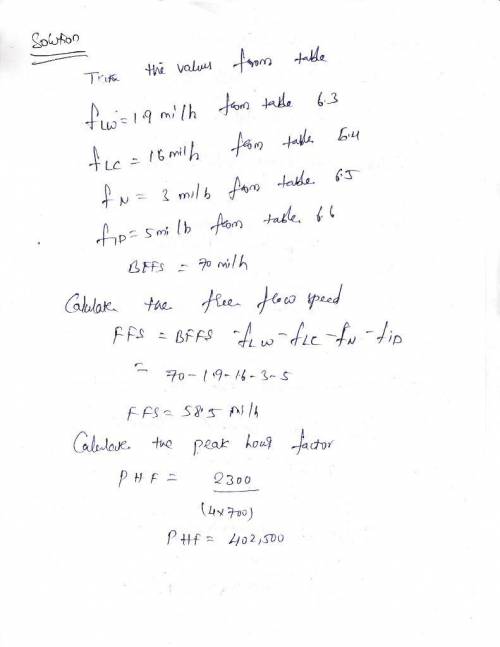 Solution
the values from table
fLW = 1.9 mi/h from table 6.3
fLC = 1.6 mi/h from table 6.4
fN = 3 mi/h from table 6.5
fID = 5 mi/h from table 6.6
BFFS = 70 mi/h
Calculate the free flow speed
FFS = BFFS - fLW - fLC - fN - fID
= 70 - 1.9 - 1.6 - 3 - 5
FFS = 58.5 mi/h
Calculate the peak hour factor
PHF = 2300
(4x700)
PHF = 402,500